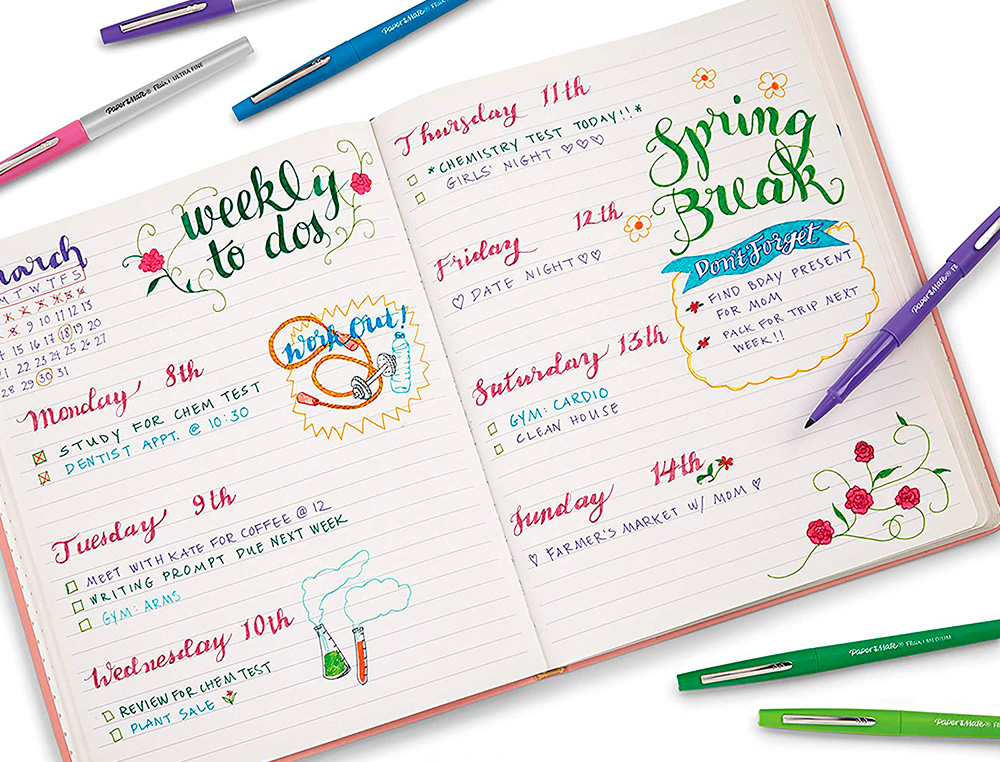 Paper Mate®
Paper Mate® Flair
Paper Mate® Flair ULTRA FINE
march
M T W T F S
8 9 10 11 12 13
15 16 17 18 19 20
21 22 23 24 25 26 27
28 29 30 31
weekly
to dos
Work Out!
Monday 8th
STUDY FOR CHEM TEST
DENTIST APPT. @ 10:30
Tuesday 9th
MEET WITH KATE FOR COFFEE @ 12
WRITING PROMPT DUE NEXT WEEK
GYM: ARMS
Wednesday 10th
REVIEW FOR CHEM TEST
PLANT SALE
Thursday 11th
*CHEMISTRY TEST TODAY!!*
GIRLS' NIGHT ♡♡♡
Friday 12th
♡ DATE NIGHT ♡♡
Saturday 13th
GYM: CARDIO
CLEAN HOUSE
Sunday 14th
♡ FARMER'S MARKET W/ MOM ♡
Spring
Break
Don't Forget
FIND BDAY PRESENT
FOR MOM
PACK FOR TRIP NEXT
WEEK!!
Paper Mate®
Paper Mate® Flair MEDIUM
Paper Mate®